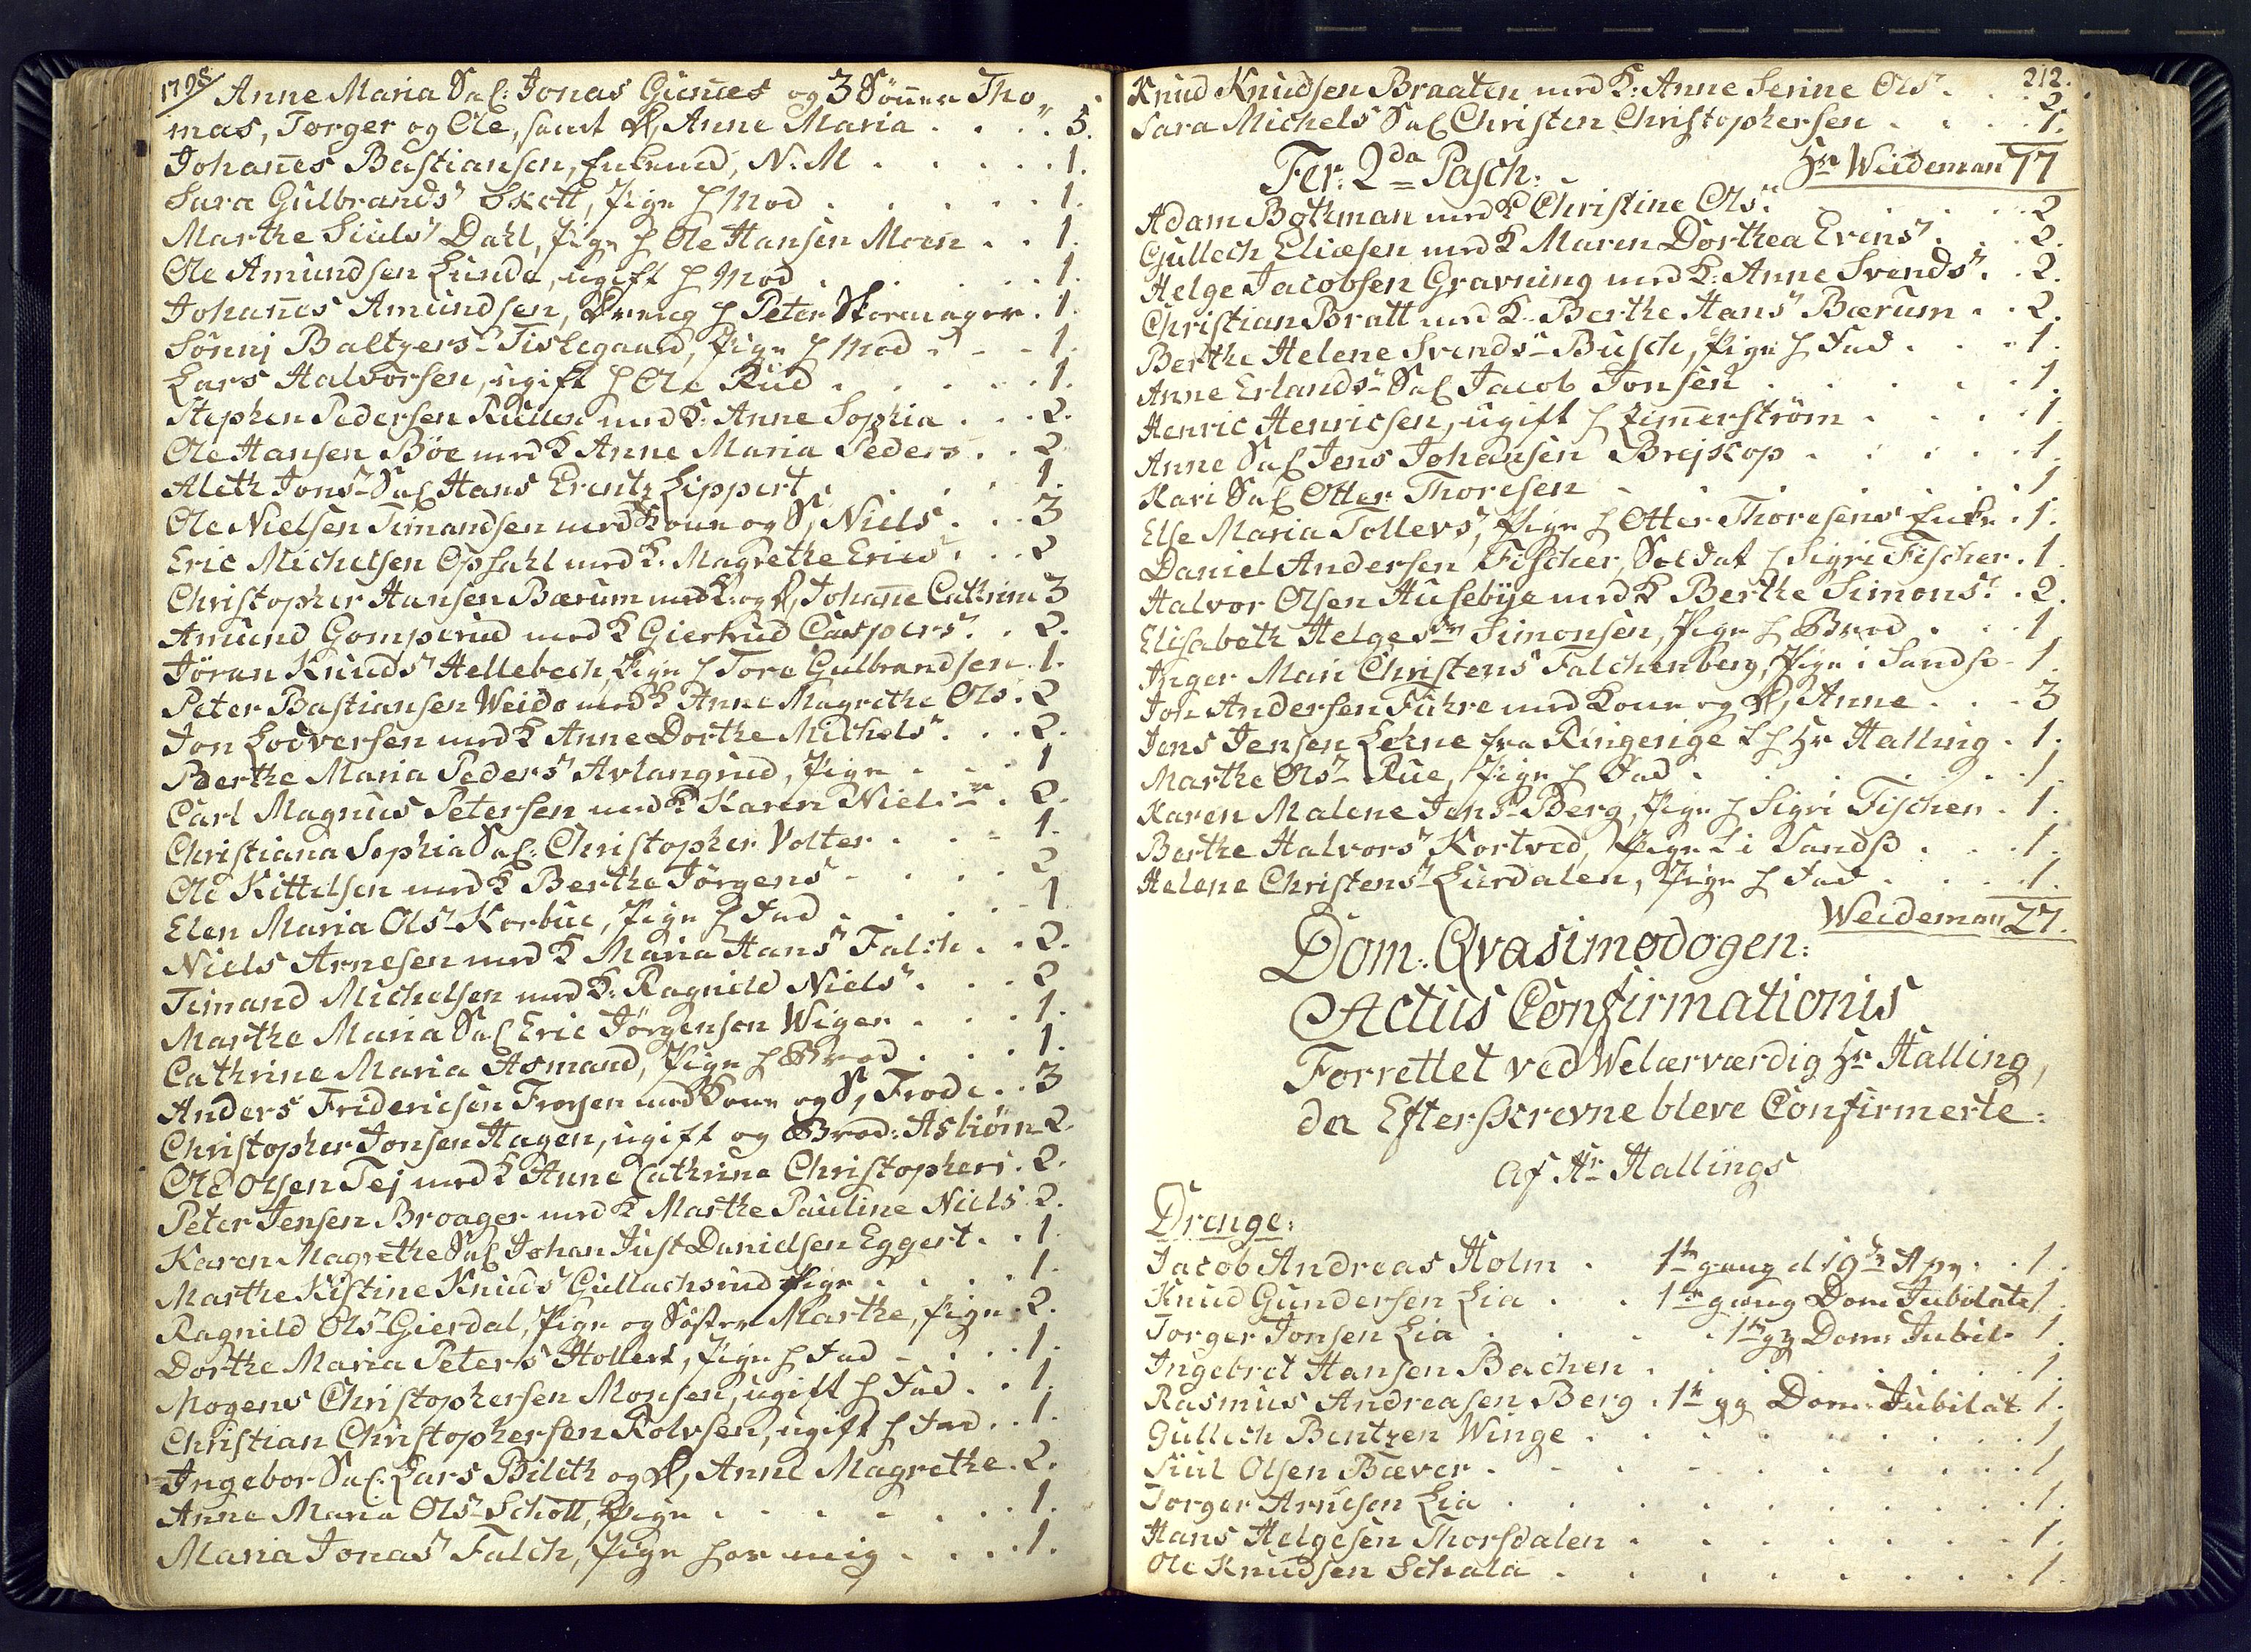 1798/
Anne Maria Sal: Jonas Giunes og 3 Sönner Tho„
mas, Torger og Ole, samt D, Anne Maria . . . . 5.
Johañes Bastiansen, Enkemd, N. M . . . . . 1.
Sara Gulbrands" Skott, Pige h Mod . . . . . 1.
Marthe Siuls" Dahl, Pige h Ole Hansen Moen . . 1.
Ole Amundsen Lunde, ugift h Mod . . . . . 1.
Johañes Amundsen, Dreng h Peter Skomager . 1.
Sönnj Baltzers" Tislegaard, Pige h Mod . . . 1.
Lars Halvorsen, ugift h Ole Rud . . . . . 1.
Stephen Pedersen med K: Anne Sophia . . . 2.
Ole Hansen Böe med K Anne Maria Peders . . 2
Aleth Jons" Sal Hans Erentz Lippert . . . . 1.
Ole Nielsen Timandsen med Kone og S, Niels . . . 3
Eric Michelsen Opsahl med K: Magrethe Erics" . . . 2
Christopher Hansen Bærum med K: og D, Johañe Cathrine 3
Amund Gomperud med K Giertrud Caspers" . . 2.
Jöran Knuds" Hellebech, Pige h Tore Gulbrandsen . 1.
Peter Bastiansen Weido med K Anne Magrethe Ols . 2
Jon Lodversen med K Anne Dorthe Michels" . . . 2.
Berthe Maria Peders" Avlangrud, Pige . . . 1
Carl Magnus Petersen med K Karen Niels" . 2.
Christiana Sophia Sal: Christopher Volter . . . 1.
Ole Kittelsen med K Berthe Jörgens" . . . . 2
Elen Maria Ols" Korbue, Pige h Fad . . . . . 1
Niels Arnesen med K Maria Hans" Falch . . 2.
Timand Michelsen med K: Ragnild Niels" . . . 2
Marthe Maria Sal Eric Jörgensen Wiger . . . 1.
Cathrine Maria Asmand, Pige h Brod . . . 1.
Anders Fridericsen Frorsen med Kone og S, Frode . . 3
Christopher Jonsen Hagen, ugift og Brod: Asbiörn 2.
Ole Olsen Tej med K Anne Cathrine Christophers . 2.
Peter Jensen Broager med K Marthe Pauline Niels . 2.
Karen Magrethe Sal Johan Just Danielsen Eggert . . 1
Marthe Kistine Knuds" Gullachsrud Pige . . . . 1.
Ragnild Ols" Gierdal, Pige og Söster Marthe, Pige . 2.
Dorthe Maria Peters" Hollers, Pige h Fad . . . . 1.
Mogens Christophersen Monsen, ugift h Fad . . 1.
Christian Christophersen Rolvsen, ugift h Fad . . 1.
Ingebor Sal: Lars Bilith og D, Anne Magrethe . 2.
Anne Maria Ols" Schott, Pige . . . . . . . 1.
Maria Jonas" Falch, Pige hos mig . . . . 1.
212.
Knud Knudsen Braaten med K: Anne Serine Ols" . . . 2.
Sara Michels" Sal Christen Christophersen . . . . 1.
Fer: 2da Pasch: . Hr Weideman 77
Adam Bothman med K Christine Ols" . . . . . 2
Gullech Eliæsen med K Maren Dorthea Evens" . . . 2.
Helge Jacobsen Gravning med K: Anne Svends" . . 2.
Christian Bratt med K. Berthe Hans" Bærum . . 2.
Berthe Helene Svends" Busch, Pige h Fad . . . 1.
Anne Erlands" Sal Jacob Jonsen . . . . . . 1.
Henric Henricsen, ugift h Zimerström . . . . 1.
Anne Sal Jens Johansen Brejskop . . . . . 1.
Kari Sal Otter Thoresen . . . . . . . 1
Else Maria Tollevs", Pige h Otter Thoresens Enke . 1.
Daniel Andersen Fischer, Soldat h Sigri Fischer . 1.
Halvor Olsen Husebije med K Berthe Simons" . . 2.
Elisabeth Helge Simonsen, Pige h Brod . . . 1.
Inger Mari Christens" Falchenberg, Pige i Sandsv . 1.
Jon Andersen Fuhre med Kone og D, Anne . . . 3
Jens Jensen Lehne fra Ringerige h Hr Halling . 1.
Marthe Ols" Rue, Pige h Fad . . . . . . . 1.
Karen Malene Jens" Berg, Pige h Sigri Fischer . 1.
Berthe Halvors" Kortved, Pige i Sandsv . . . 1.
Helene Christens" Lurdalen, Pige h Fad . . . . 1.
Weideman 27.
Dom: Qvasimodogen:
Actus Confirmationis
Forrettet ved Welærværdig Hr Halling,
da Efterskrevne bleve Confirmerte:
Af Hr Hallings
Drenge:
Jacob Andreas Holm . 1te gang d 19de Apr. . 1.
Knud Gundersen Lia . . 1te gang Dom Jubilate 1.
Torger Jonsen Lia . . . . 1te gg Dom: Jubil. 1.
Ingebret Hansen Bachen . . . . . . . 1.
Rasmus Andreasen Berg . 1te gg Dom: Jubilat 1.
Gullich Bentzen Winge . . . . . . . 1
Siul Olsen Bæver . . . . . . . . 1
Torger Arnesen Lia . . . . . . . . 1.
Hans Helgesen Thorsdalen . . . . . . 1.
Ole Knudsen Schala . . . . . . . 1.